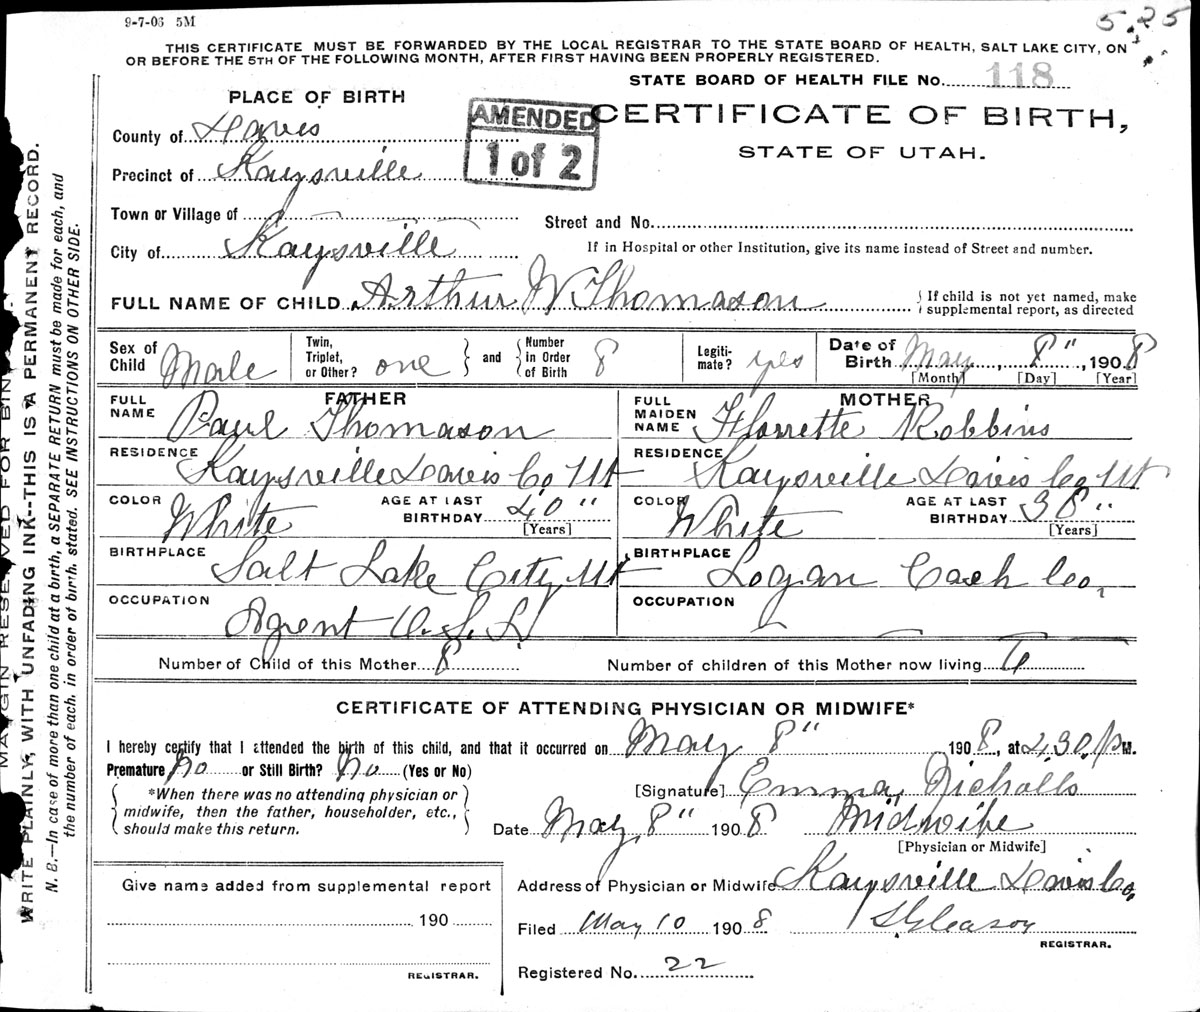 9-7-06 5M
5.25
THIS CERTIFICATE MUST BE FORWARDED BY THE LOCAL REGISTRAR TO THE STATE BOARD OF HEALTH, SALT LAKE CITY, ON
OR BEFORE THE 5TH OF THE FOLLOWING MONTH, AFTER FIRST HAVING BEEN PROPERLY REGISTERED.
STATE BOARD OF HEALTH FILE No. 118
PLACE OF BIRTH
AMENDED
1 of 2
CERTIFICATE OF BIRTH,
STATE OF UTAH.
County of Davis
Precinct of Kaysville
Town or Village of
Street and No.
City of Kaysville
If in Hospital or other Institution, give its name instead of Street and number.
FULL NAME OF CHILD Arthur W Thomason
If child is not yet named, make
supplemental report, as directed
Sex of Child Male
Twin, Triplet, or Other? one
and
Number in Order of Birth 8
Legiti-mate? yes
Date of Birth May 8", 1908
[Month] [Day] [Year]
FATHER
FULL NAME Paul Thomason
RESIDENCE Kaysville Davis Co Ut
COLOR White
AGE AT LAST BIRTHDAY 40"
[Years]
BIRTHPLACE Salt Lake City Ut
OCCUPATION Agent O.S.L.
MOTHER
FULL MAIDEN NAME Florrette Robbins
RESIDENCE Kaysville Davis Co Ut
COLOR White
AGE AT LAST BIRTHDAY 38"
[Years]
BIRTHPLACE Logan Cach Co,
OCCUPATION
Number of Child of this Mother 8
Number of children of this Mother now living
CERTIFICATE OF ATTENDING PHYSICIAN OR MIDWIFE*
I hereby certify that I attended the birth of this child, and that it occurred on May 8" 1908, at 4.30 PM.
Premature No or Still Birth? No (Yes or No)
*When there was no attending physician or
midwife, then the father, householder, etc.,
should make this return.
[Signature] Emma Nicholls
Date May 8" 1908 Midwife
[Physician or Midwife]
Give name added from supplemental report
190
REGISTRAR.
Address of Physician or Midwife Kaysville Davis Co,
Filed May 10 1908 Gleason
REGISTRAR.
Registered No. 22
MARGIN RESERVED FOR BIN
WRITE PLAINLY, WITH UNFADING INK--THIS IS A PERMANENT RECORD.
N. B.—In case of more than one child at a birth, a SEPARATE RETURN must be made for each, and
the number of each, in order of birth, stated. SEE INSTRUCTIONS ON OTHER SIDE.